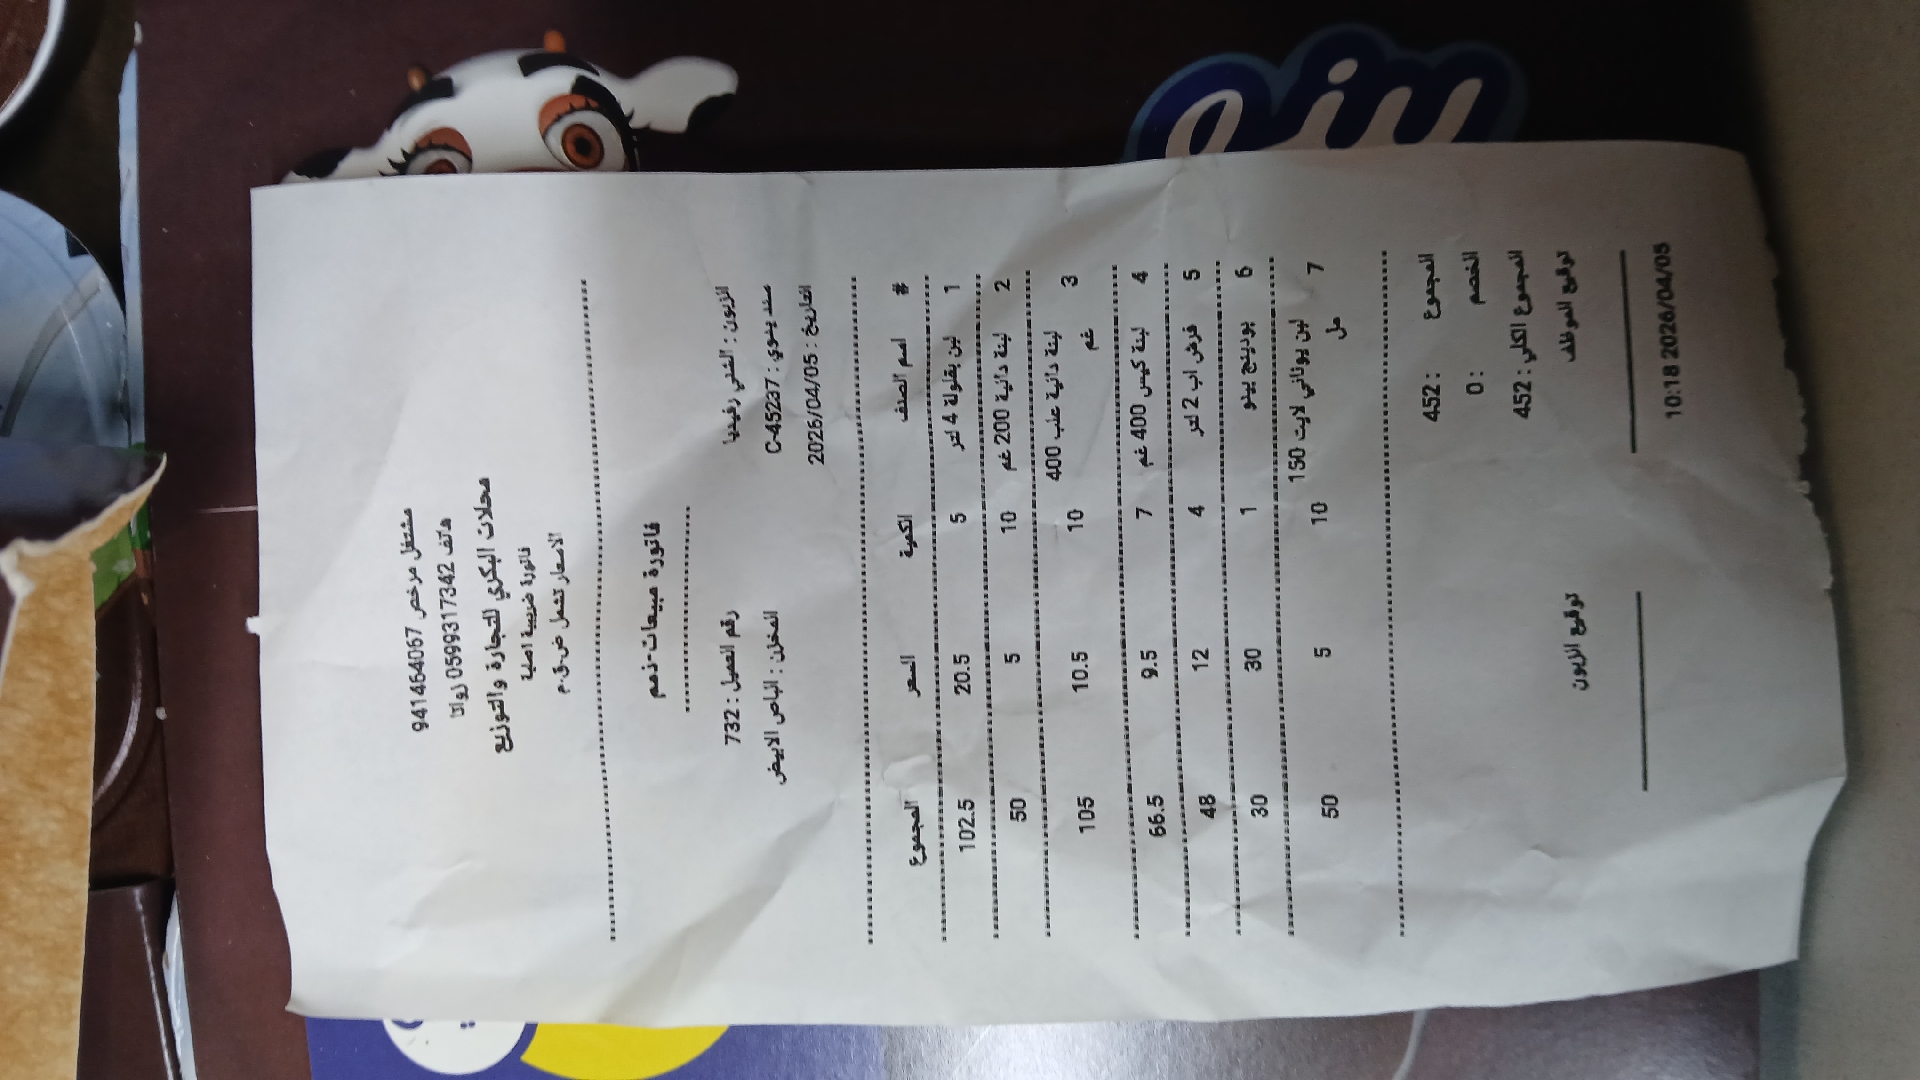 مشتغل مرخص 941464067
هاتف 0599317342 زواتا
محلات البكري للتجارة والتوزيع
فاتورة ضريبية اصلية
الاسعار تشمل ض.ق.م
فاتورة مبيعات-ذمم
الزبون : الشني رفيديا رقم العميل : 732
سند يدوي : C-45237 المخزن : الباص الابيض
التاريخ : 2026/04/05
# اسم الصنف الكمية السعر المجموع
1 لبن بقلولة 4 لتر 5 20.5 102.5
2 لبنة دانية 200 غم 10 5 50
3 لبنة دانية علب 400 غم 10 10.5 105
4 لبنة كيس 400 غم 7 9.5 66.5
5 فرش اب 2 لتر 4 12 48
6 بودينج بينو 1 30 30
7 لبن يوناني لايت 150 مل 10 5 50
المجموع : 452
الخصم : 0
المجموع الكلي : 452
توقيع الموظف توقيع الزبون
10:18 2026/04/05